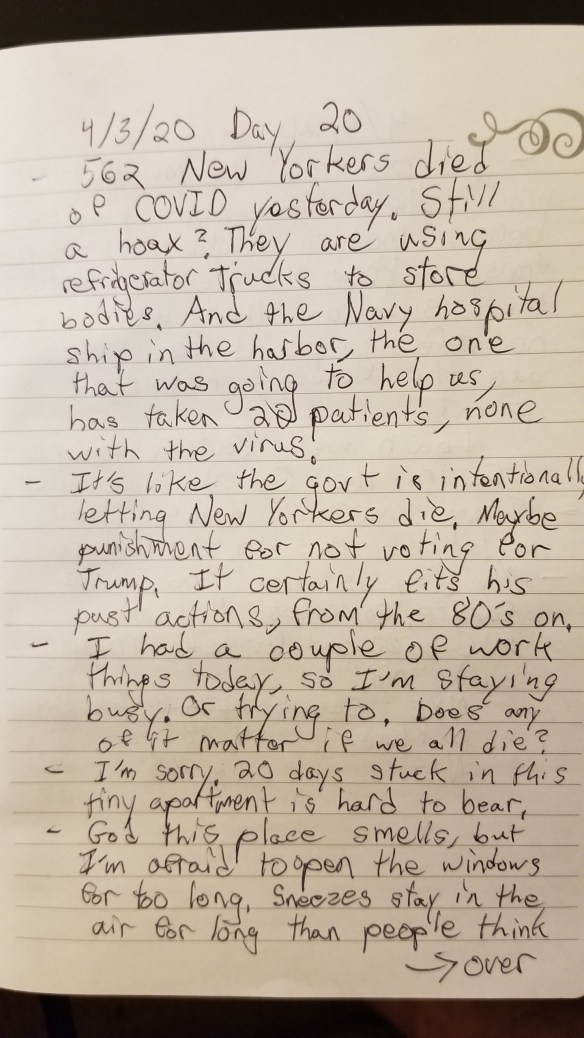 4/3/20 Day 20
- 562 New Yorkers died
of COVID yesterday. Still
a hoax? They are using
refrigerator trucks to store
bodies. And the Navy hospital
ship in the harbor, the one
that was going to help us,
has taken 20 patients, none
with the virus!
- It's like the govt is intentionally
letting New Yorkers die. Maybe
punishment for not voting for
Trump. It certainly fits his
past actions, from the 80's on.
- I had a couple of work
things today, so I'm staying
busy. Or trying to. Does any
of it matter if we all die?
- I'm sorry. 20 days stuck in this
tiny apartment is hard to bear.
- God this place smells, but
I'm afraid to open the windows
for too long. Sneezes stay in the
air for long than people think
→ over